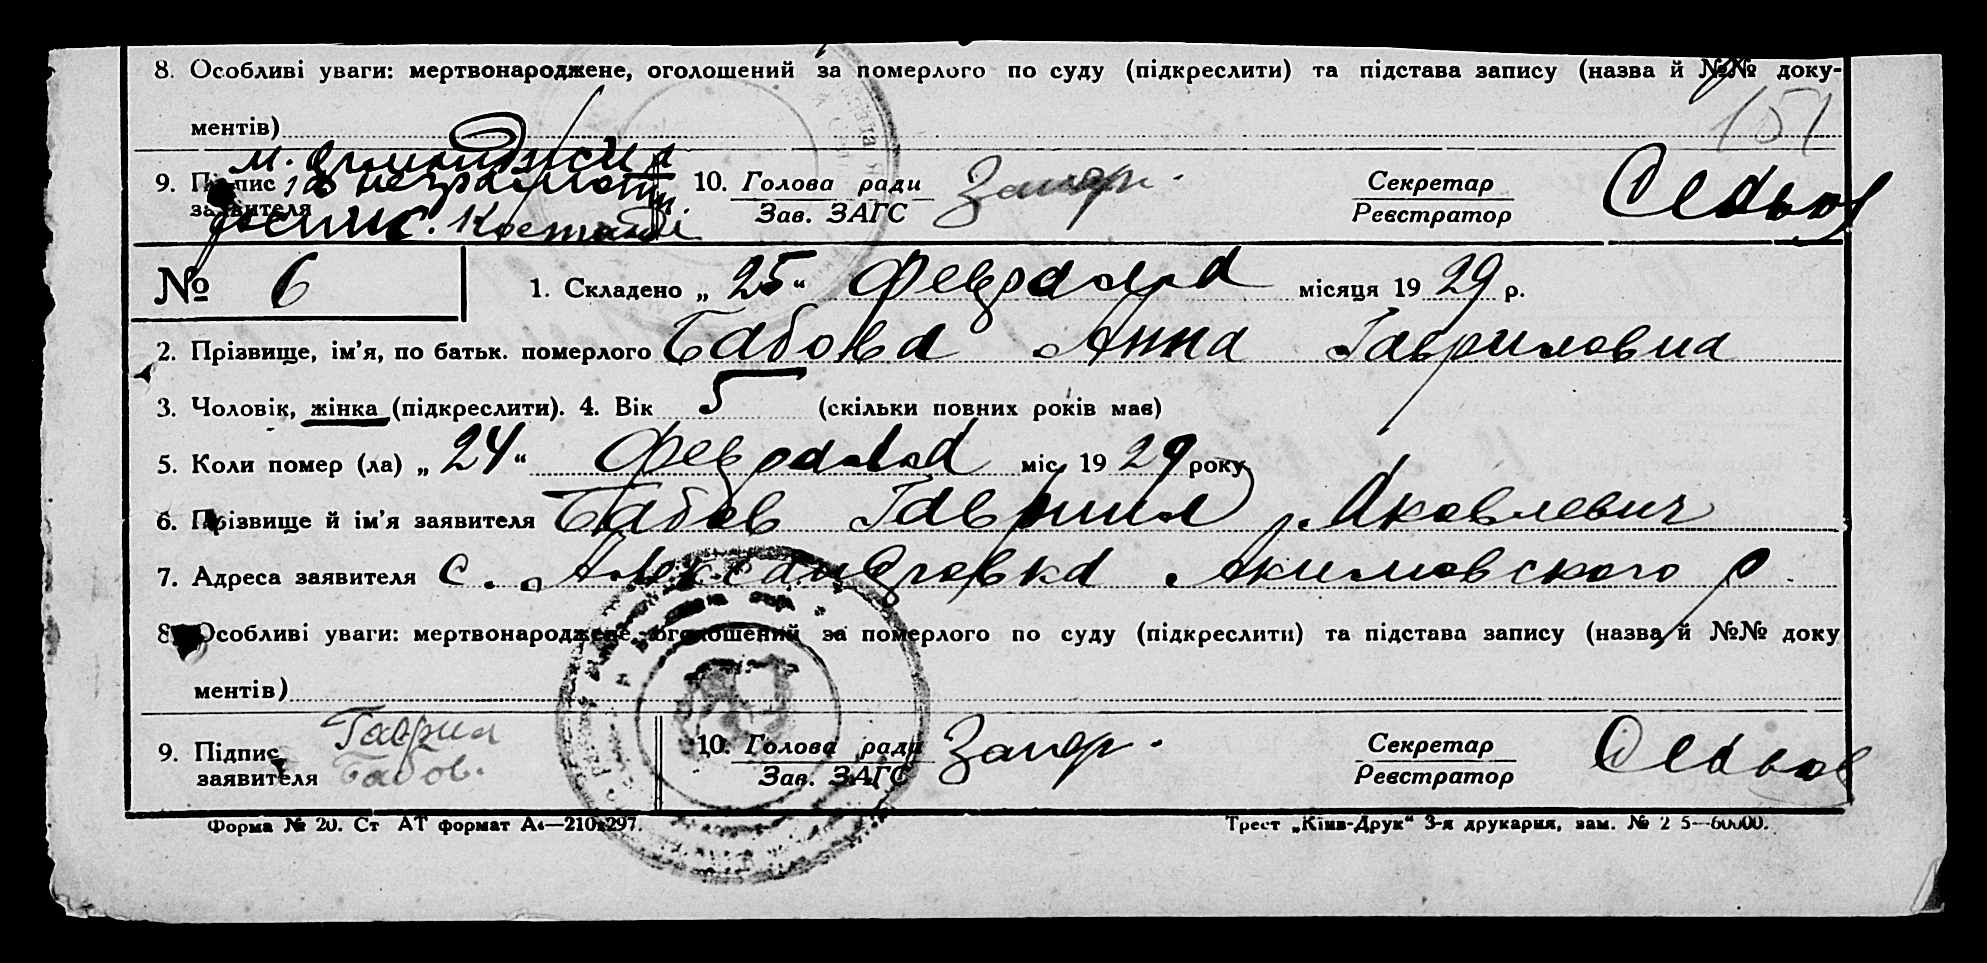 8. Особливі уваги: мертвонароджене, оголошений за померлого по суду (підкреслити) та підстава запису (назва й №№ доку-
151
ментів)
9. Підпис заявителя за неграмотн 10. Голова ради Зав. ЗАГС Секретар Реєстратор
№ 6 1. Складено „25“ Февраля місяця 1929 р.
2. Прізвище, ім'я, по батьк. померлого Бабова Анна Гавриловна
3. Чоловік, жінка (підкреслити). 4. Вік 5 (скільки повних років мав)
5. Коли помер (ла) „24“ Февраля міс. 1929 року
6. Прізвище й ім'я заявителя Бабов Гавриил Яковлевич
7. Адреса заявителя с. Александровка Акимовского р.
8. Особливі уваги: мертвонароджене, оголошений за померлого по суду (підкреслити) та підстава запису (назва й №№ доку
ментів)
9. Підпис заявителя Гаврил Бабов. 10. Голова ради Зав. ЗАГС Секретар Реєстратор
Форма № 20. Ст АТ формат А4—210x297. Трест „Київ-Друк“ 3-я друкарня, зам. №